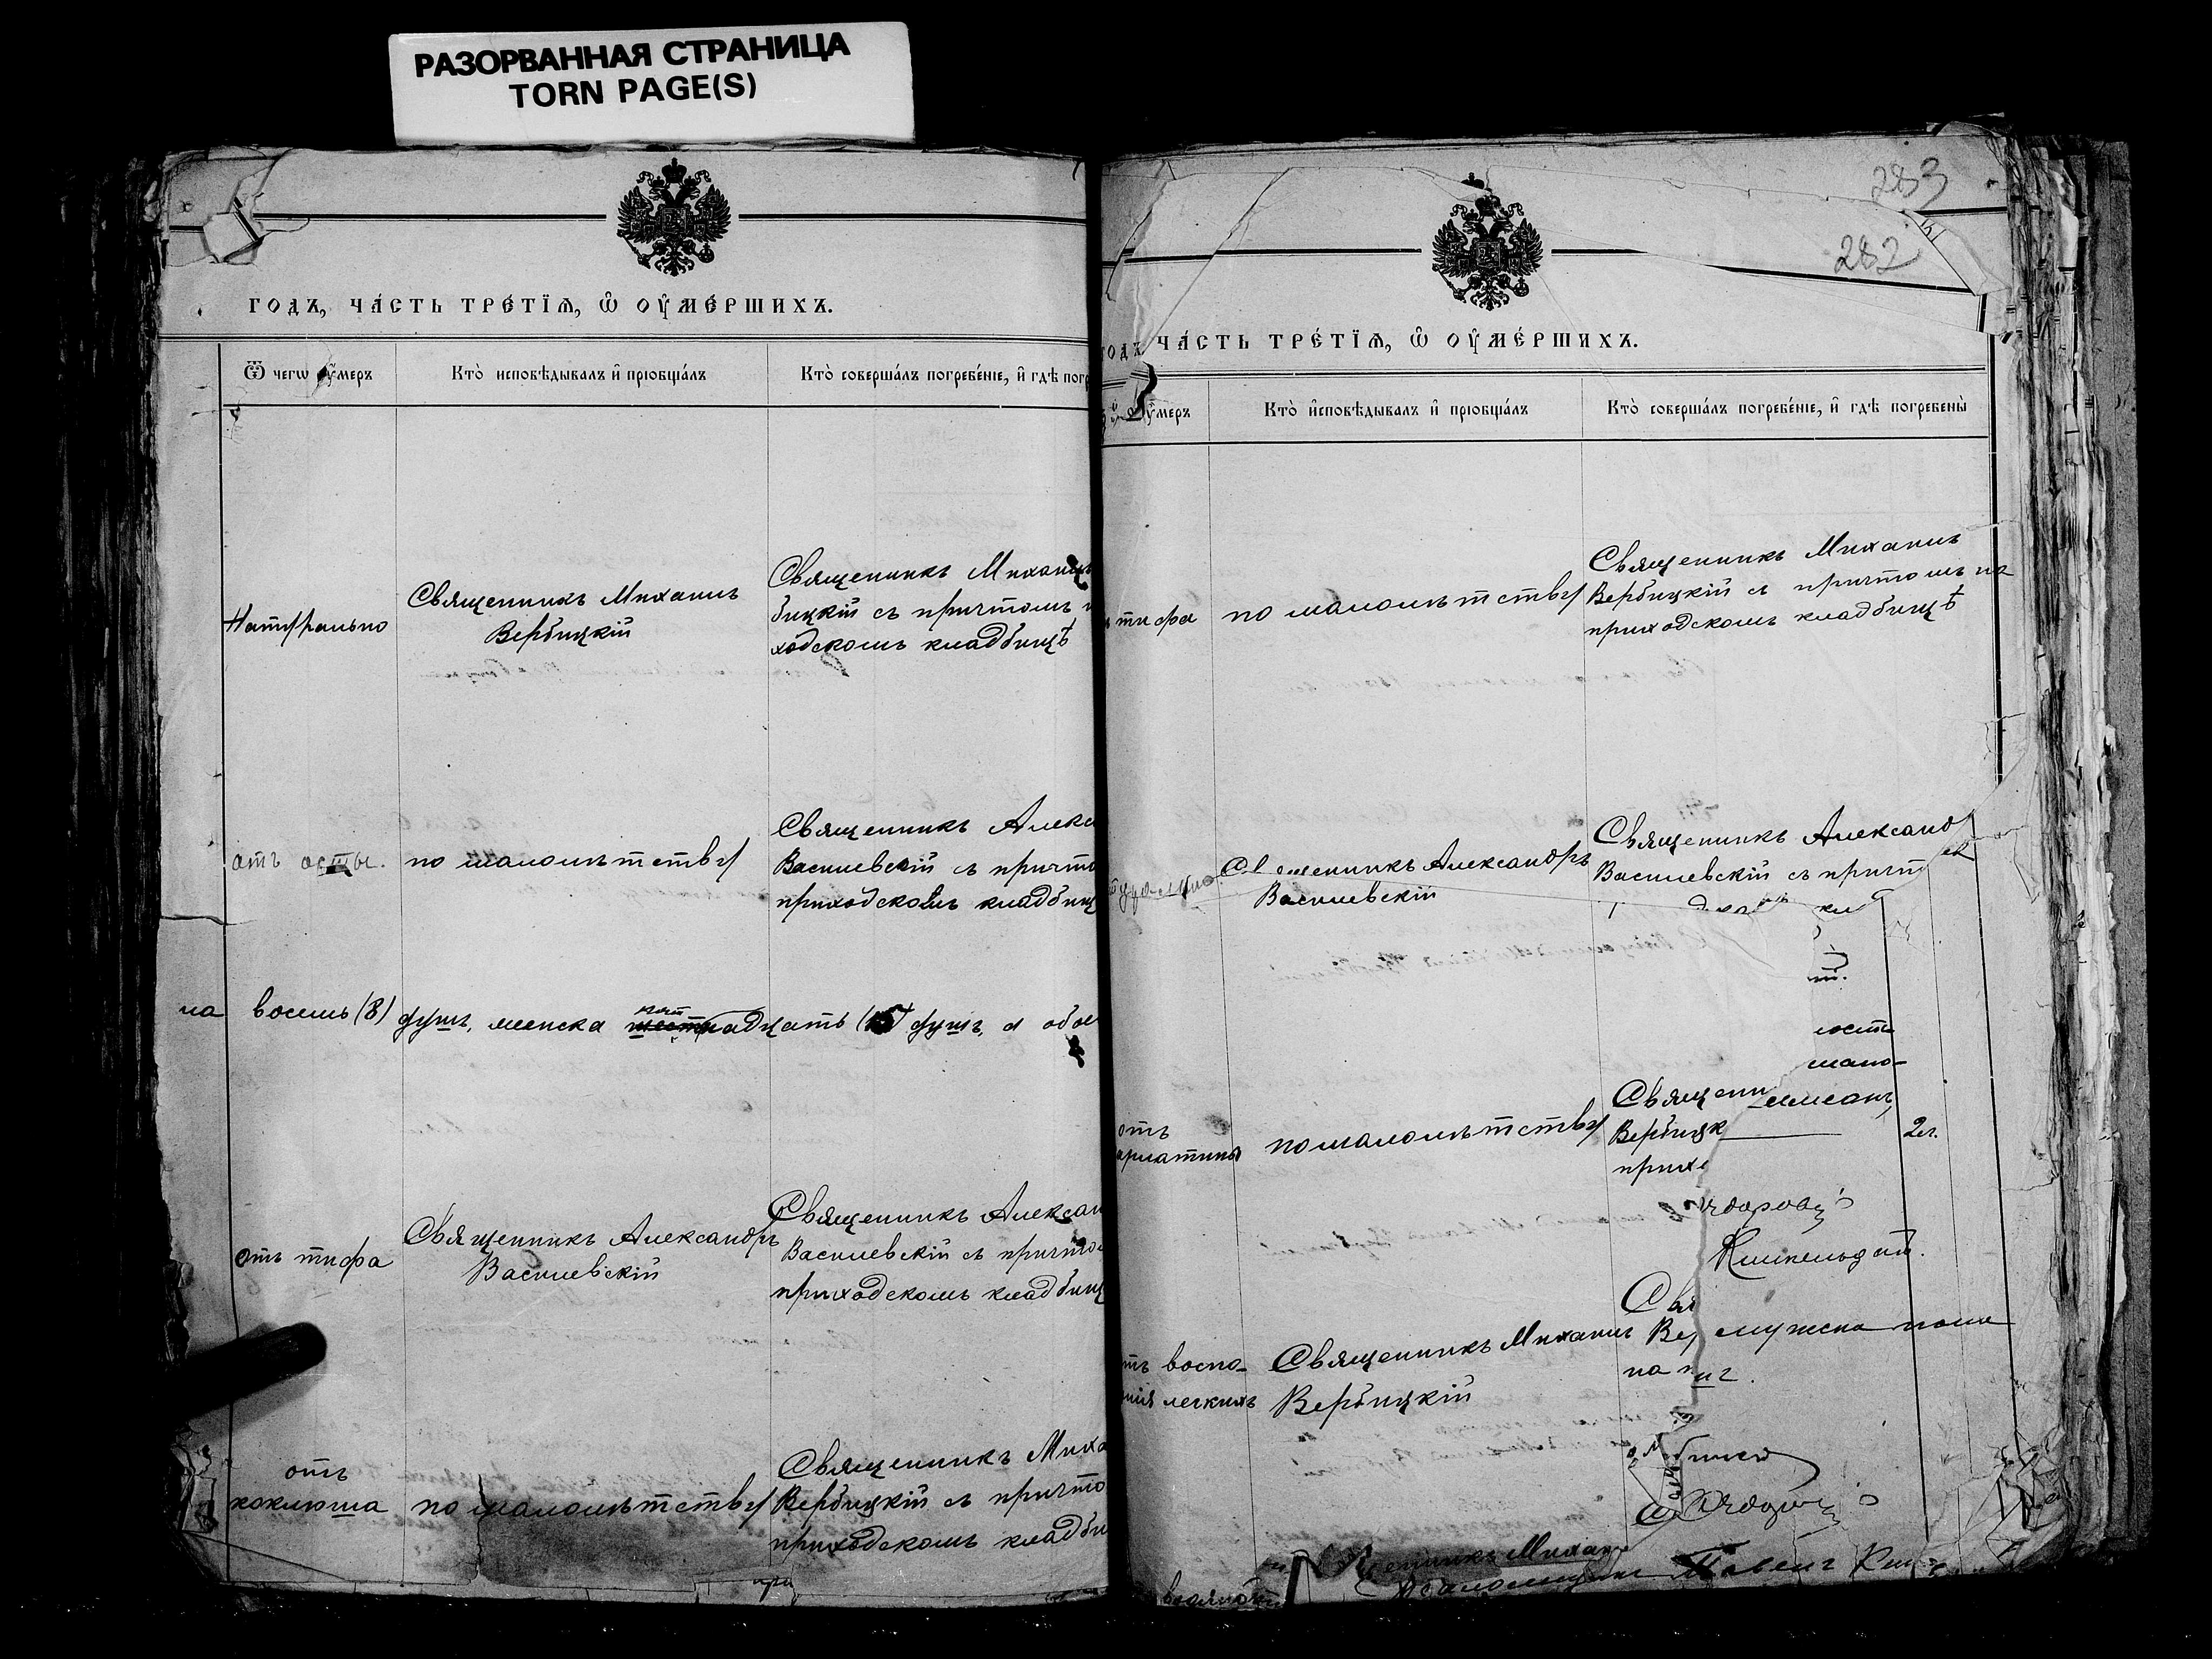 РАЗОРВАННАЯ СТРАНИЦА
TORN PAGE(S)
годъ, ча́сть тре́тїѧ, ѡ҆ оу҆ме́ршихъ.
Ѿ чегѡ оу҆меръ
Кто̀ исповѣдывалъ и҆ прїобща́лъ
Кто̀ соверша́лъ погребе́нїе, и҆ гдѣ погр
Натурально
Священникъ Михаилъ
Вербицкій
Священникъ Михаилъ
бицкій съ причтомъ
ходскомъ кладбищѣ
отъ оспы.
по малолѣтству
Священникъ Алекса
Василевскій съ причто
приходскомъ кладбищ
на восемь (8) душъ, женска пят надцать душъ, а обое
отъ тифа
Священникъ Александръ
Василевскій
Священникъ Александ
Василевскій съ причто
приходскомъ кладбищ
отъ
коклюша
по малолѣтству
Священникъ Миха
Вербицкій съ причто
приходскомъ кладби
при
283
282
годъ ча́сть тре́тїѧ, ѡ҆ оу҆ме́ршихъ.
оу҆меръ
Кто̀ и҆сповѣдывалъ и҆ прїобща́лъ
Кто̀ соверша́лъ погребе́нїе, и҆ гдѣ погребены̀
тифа
по малолѣтству
Священникъ Михаилъ
Вербицкій съ причтомъ на
приходскомъ кладбищѣ
Священникъ Александръ
Василевскій
Священникъ Александ
Василевскій съ причт
кла
отъ
арлатины
по малолѣтству
Священ
Вербицк
прих
2л.
тъ воспа-
нія легкихъ
Священникъ Михаилъ
Вербицкій
Свя
Ве
на
мужска пола
Священникъ Михаи
Псаломщикъ Павелъ